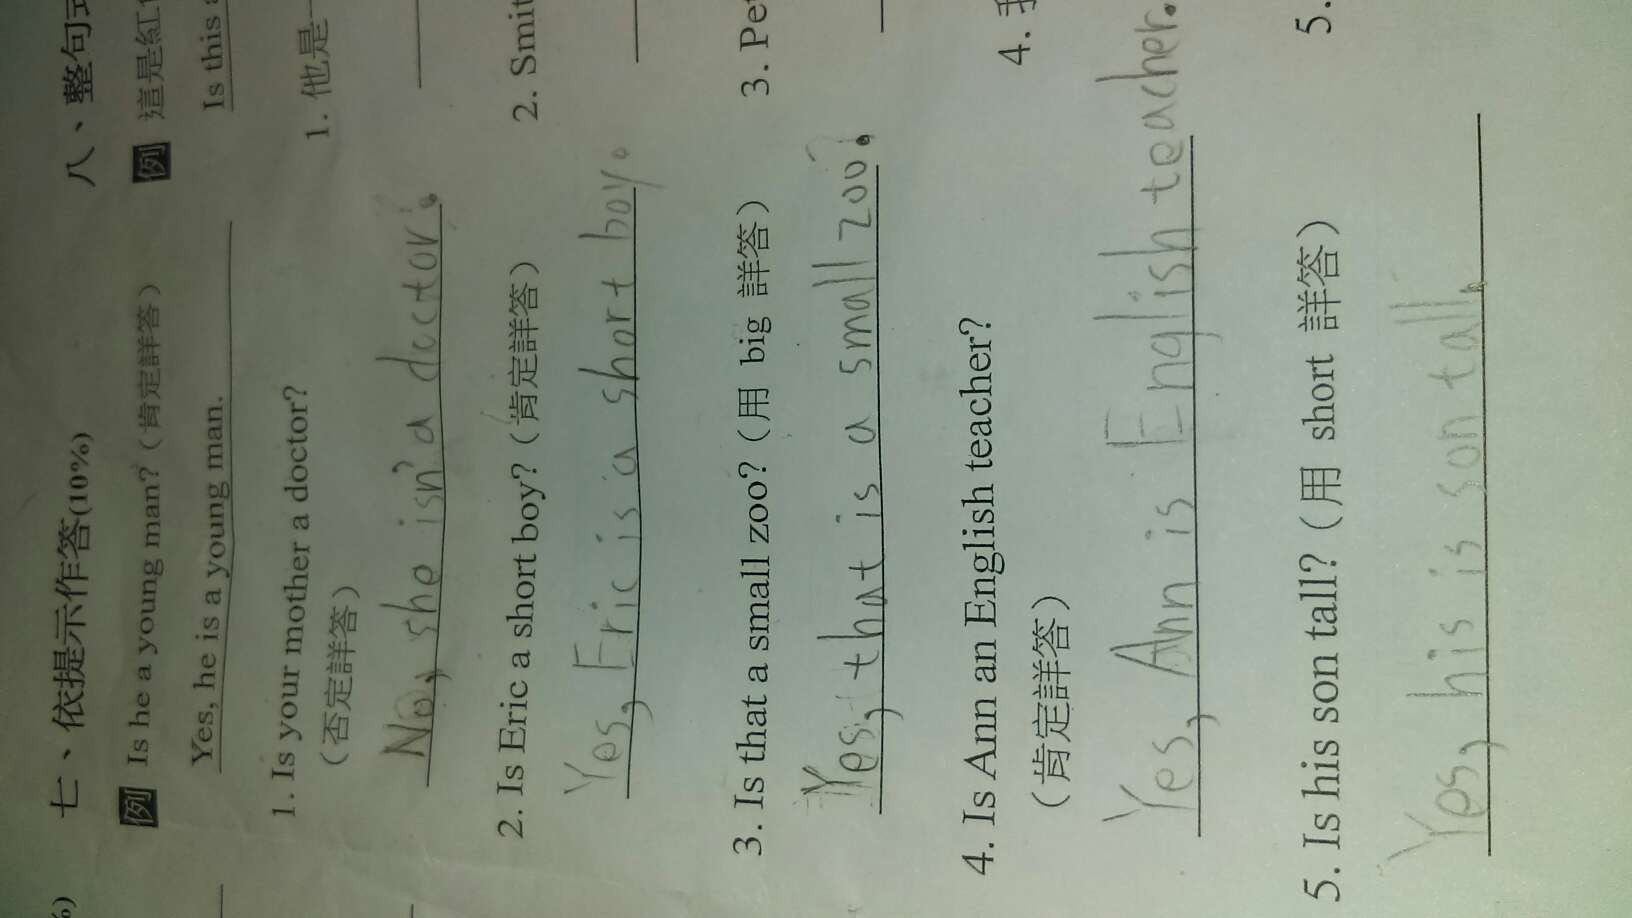 七、依提示作答(10%)
例 Is he a young man?（肯定詳答）
Yes, he is a young man.
1. Is your mother a doctor?
（否定詳答）
No, she isn'a doctor.
2. Is Eric a short boy?（肯定詳答）
Yes, Eric is a short boy.
3. Is that a small zoo?（用 big 詳答）
Yes, that is a small zoo.
4. Is Ann an English teacher?
（肯定詳答）
Yes, Ann is English teacher.
5. Is his son tall?（用 short 詳答）
Yes, his is son tall.
八、整句式
例 這是紅
Is this
1. 他是一
2. Smit
3. Pe
4. 我
5.